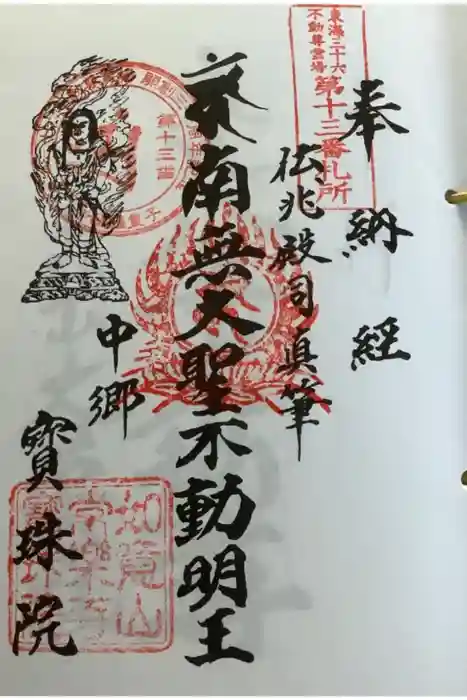 奉納経
東海三十六
不動尊霊場
第十三番札所
伝兆殿司真筆
南無大聖不動明王
第十三番
中郷
寶珠院